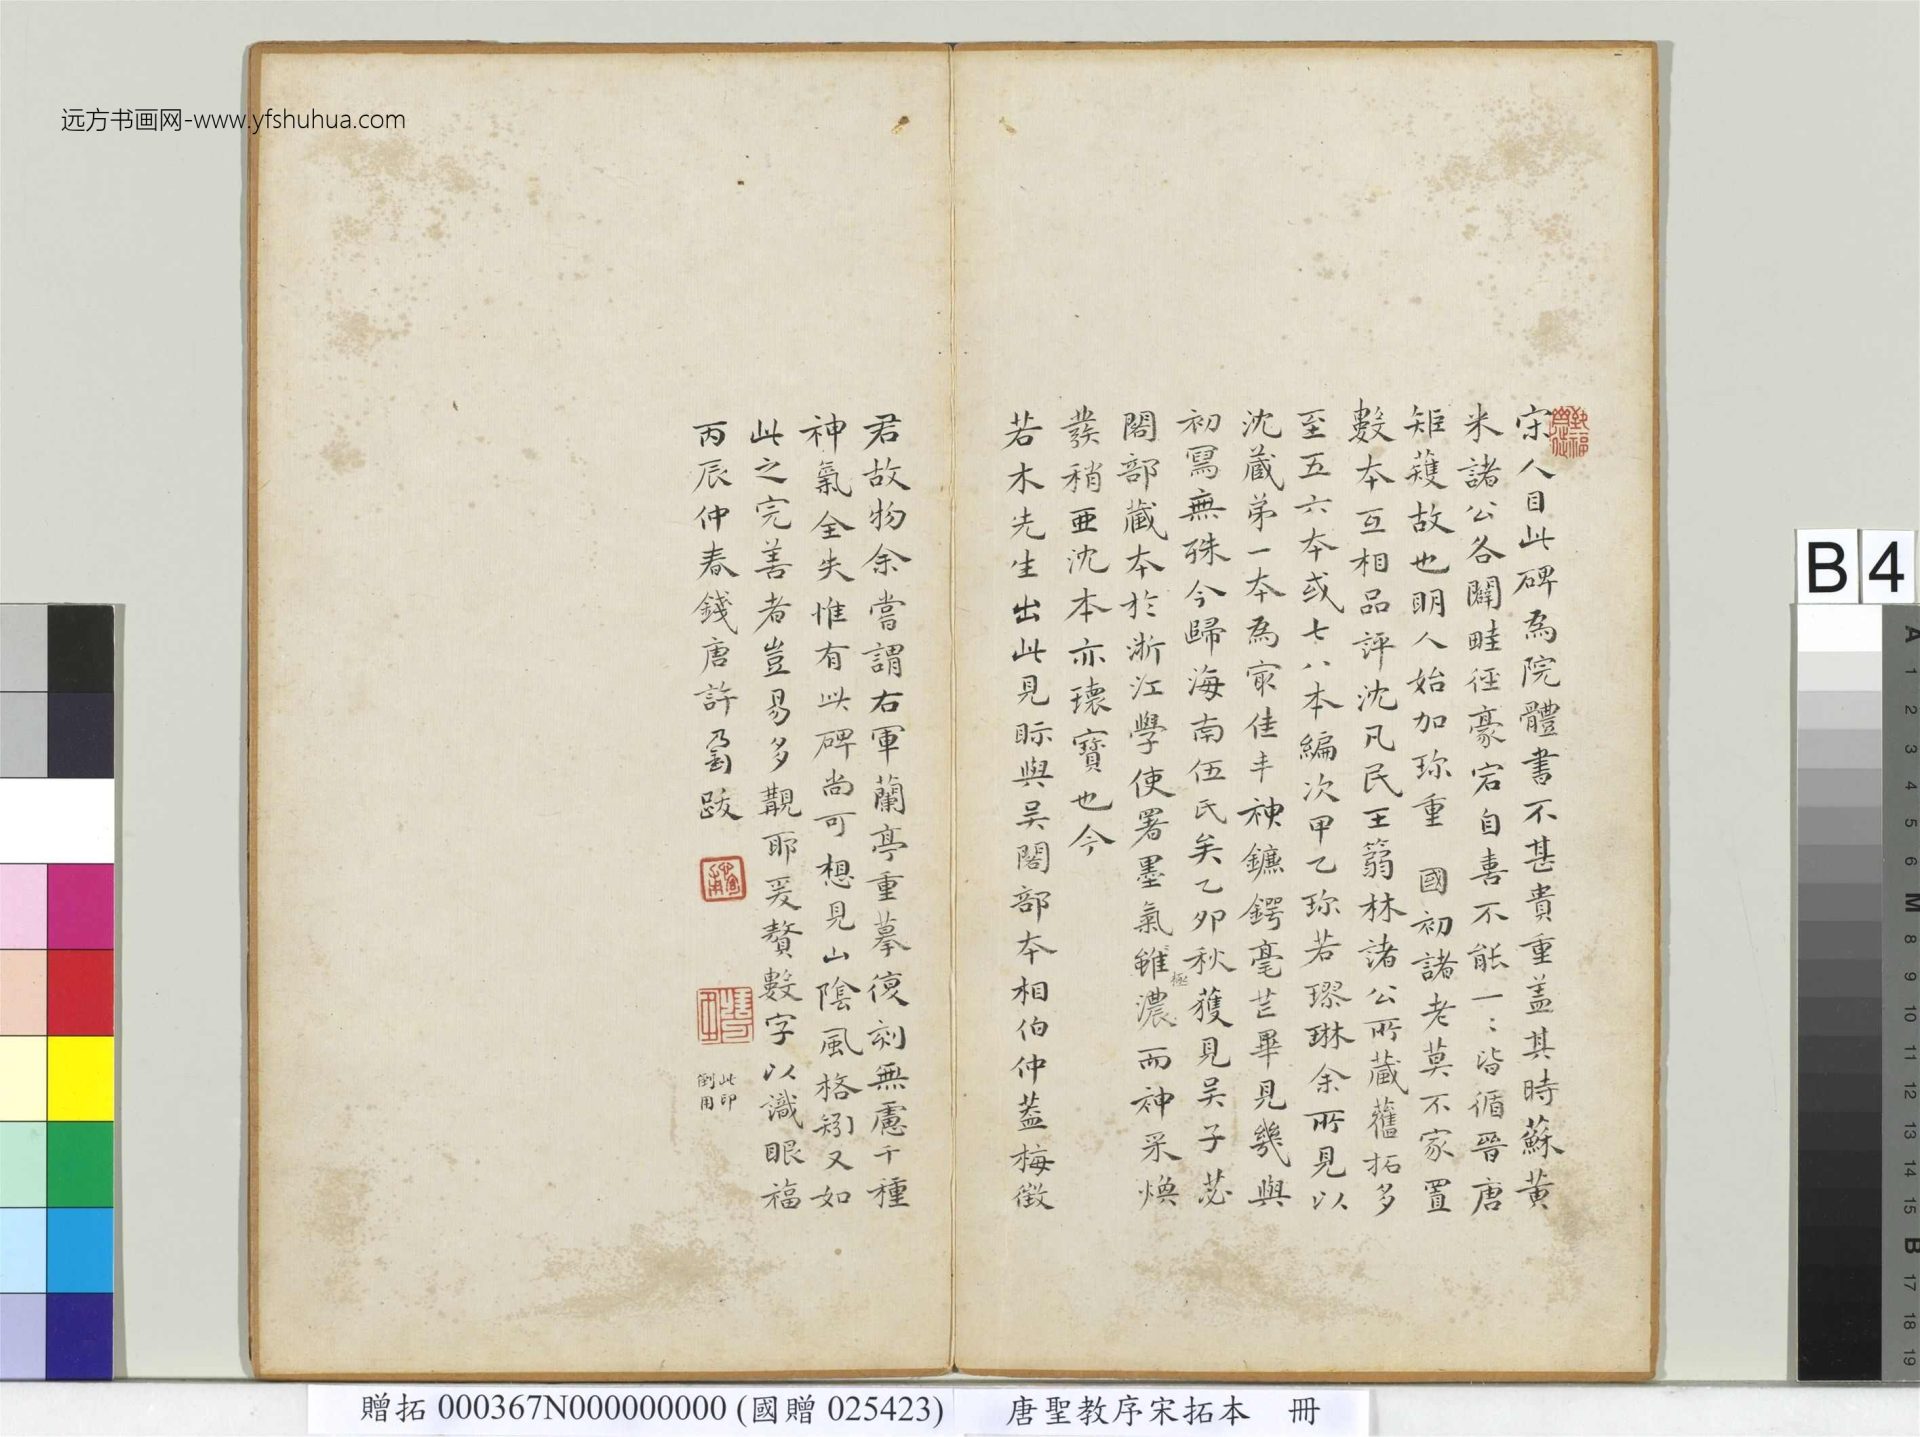 远方书画网-www.yfshuhua.com
宋人目此碑為院體書不甚貴重盖其時蘇黄
米諸公各闢畦徑豪宕自喜不能一〻皆循晉唐
矩蒦故也明人始加珎重 國初諸老莫不家置
數本互相品評沈凡民王蒻林諸公所藏舊拓多
至五六本或七八本編次甲乙珎若璆琳余所見以
沈藏弟一本為冣佳丰神鑣鍔毫芒畢見幾與
初寫無殊今歸海南伍氏矣乙卯秋獲見吴子苾
閣部藏本於浙江學使署墨氣雖濃而神采煥
極
發稍亜沈本亦瓌寶也今
若木先生出此見眎與吴閣部本相伯仲蓋梅徵
君故物余嘗謂右軍蘭亭重摹復刻無慮千種
神氣全失惟有此碑尚可想見山陰風格矧又如
此之完善者豈易多覯耶爰贅數字以識眼福
丙辰仲春錢唐許乃釗跋
此印
倒用
B 4
贈拓 000367N000000000 (國贈 025423)
唐聖教序宋拓本 冊
A
1
2
3
4
5
6
M
8
9
10
11
12
13
14
15
B
17
18
19